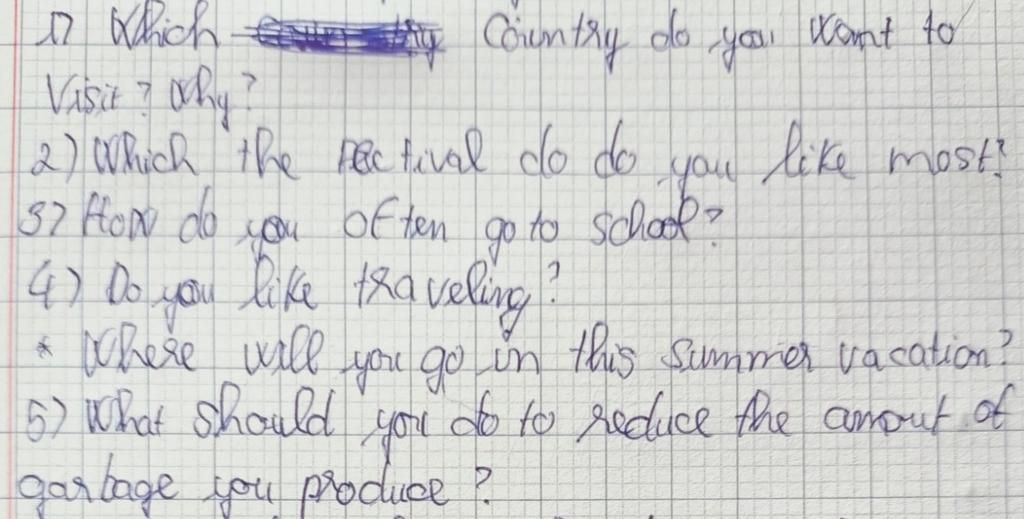 1) Which Country do you want to
Visit? Why?
2) Which the fectival do do you like most?
3) How do you often go to school?
4) Do you like traveling?
* Where will you go in this summer vacation?
5) What should you do to reduce the amout of
garbage you produce?